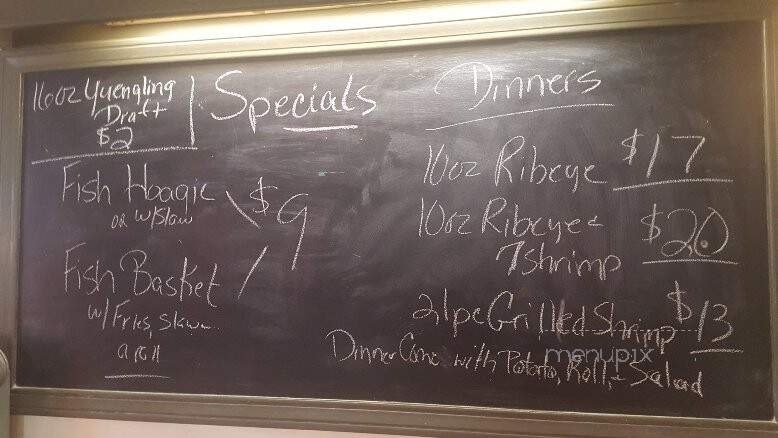 16oz Yuengling
Draft
$2
Specials
Fish Hoagie
or w/Slaw
$9
Fish Basket
w/Fries, Slaw
a roll
Dinners
10oz Ribeye $17
10oz Ribeye &
7 shrimp $20
21pc Grilled Shrimp $13
Dinner Come with Potato, Roll, + Salad
menupix